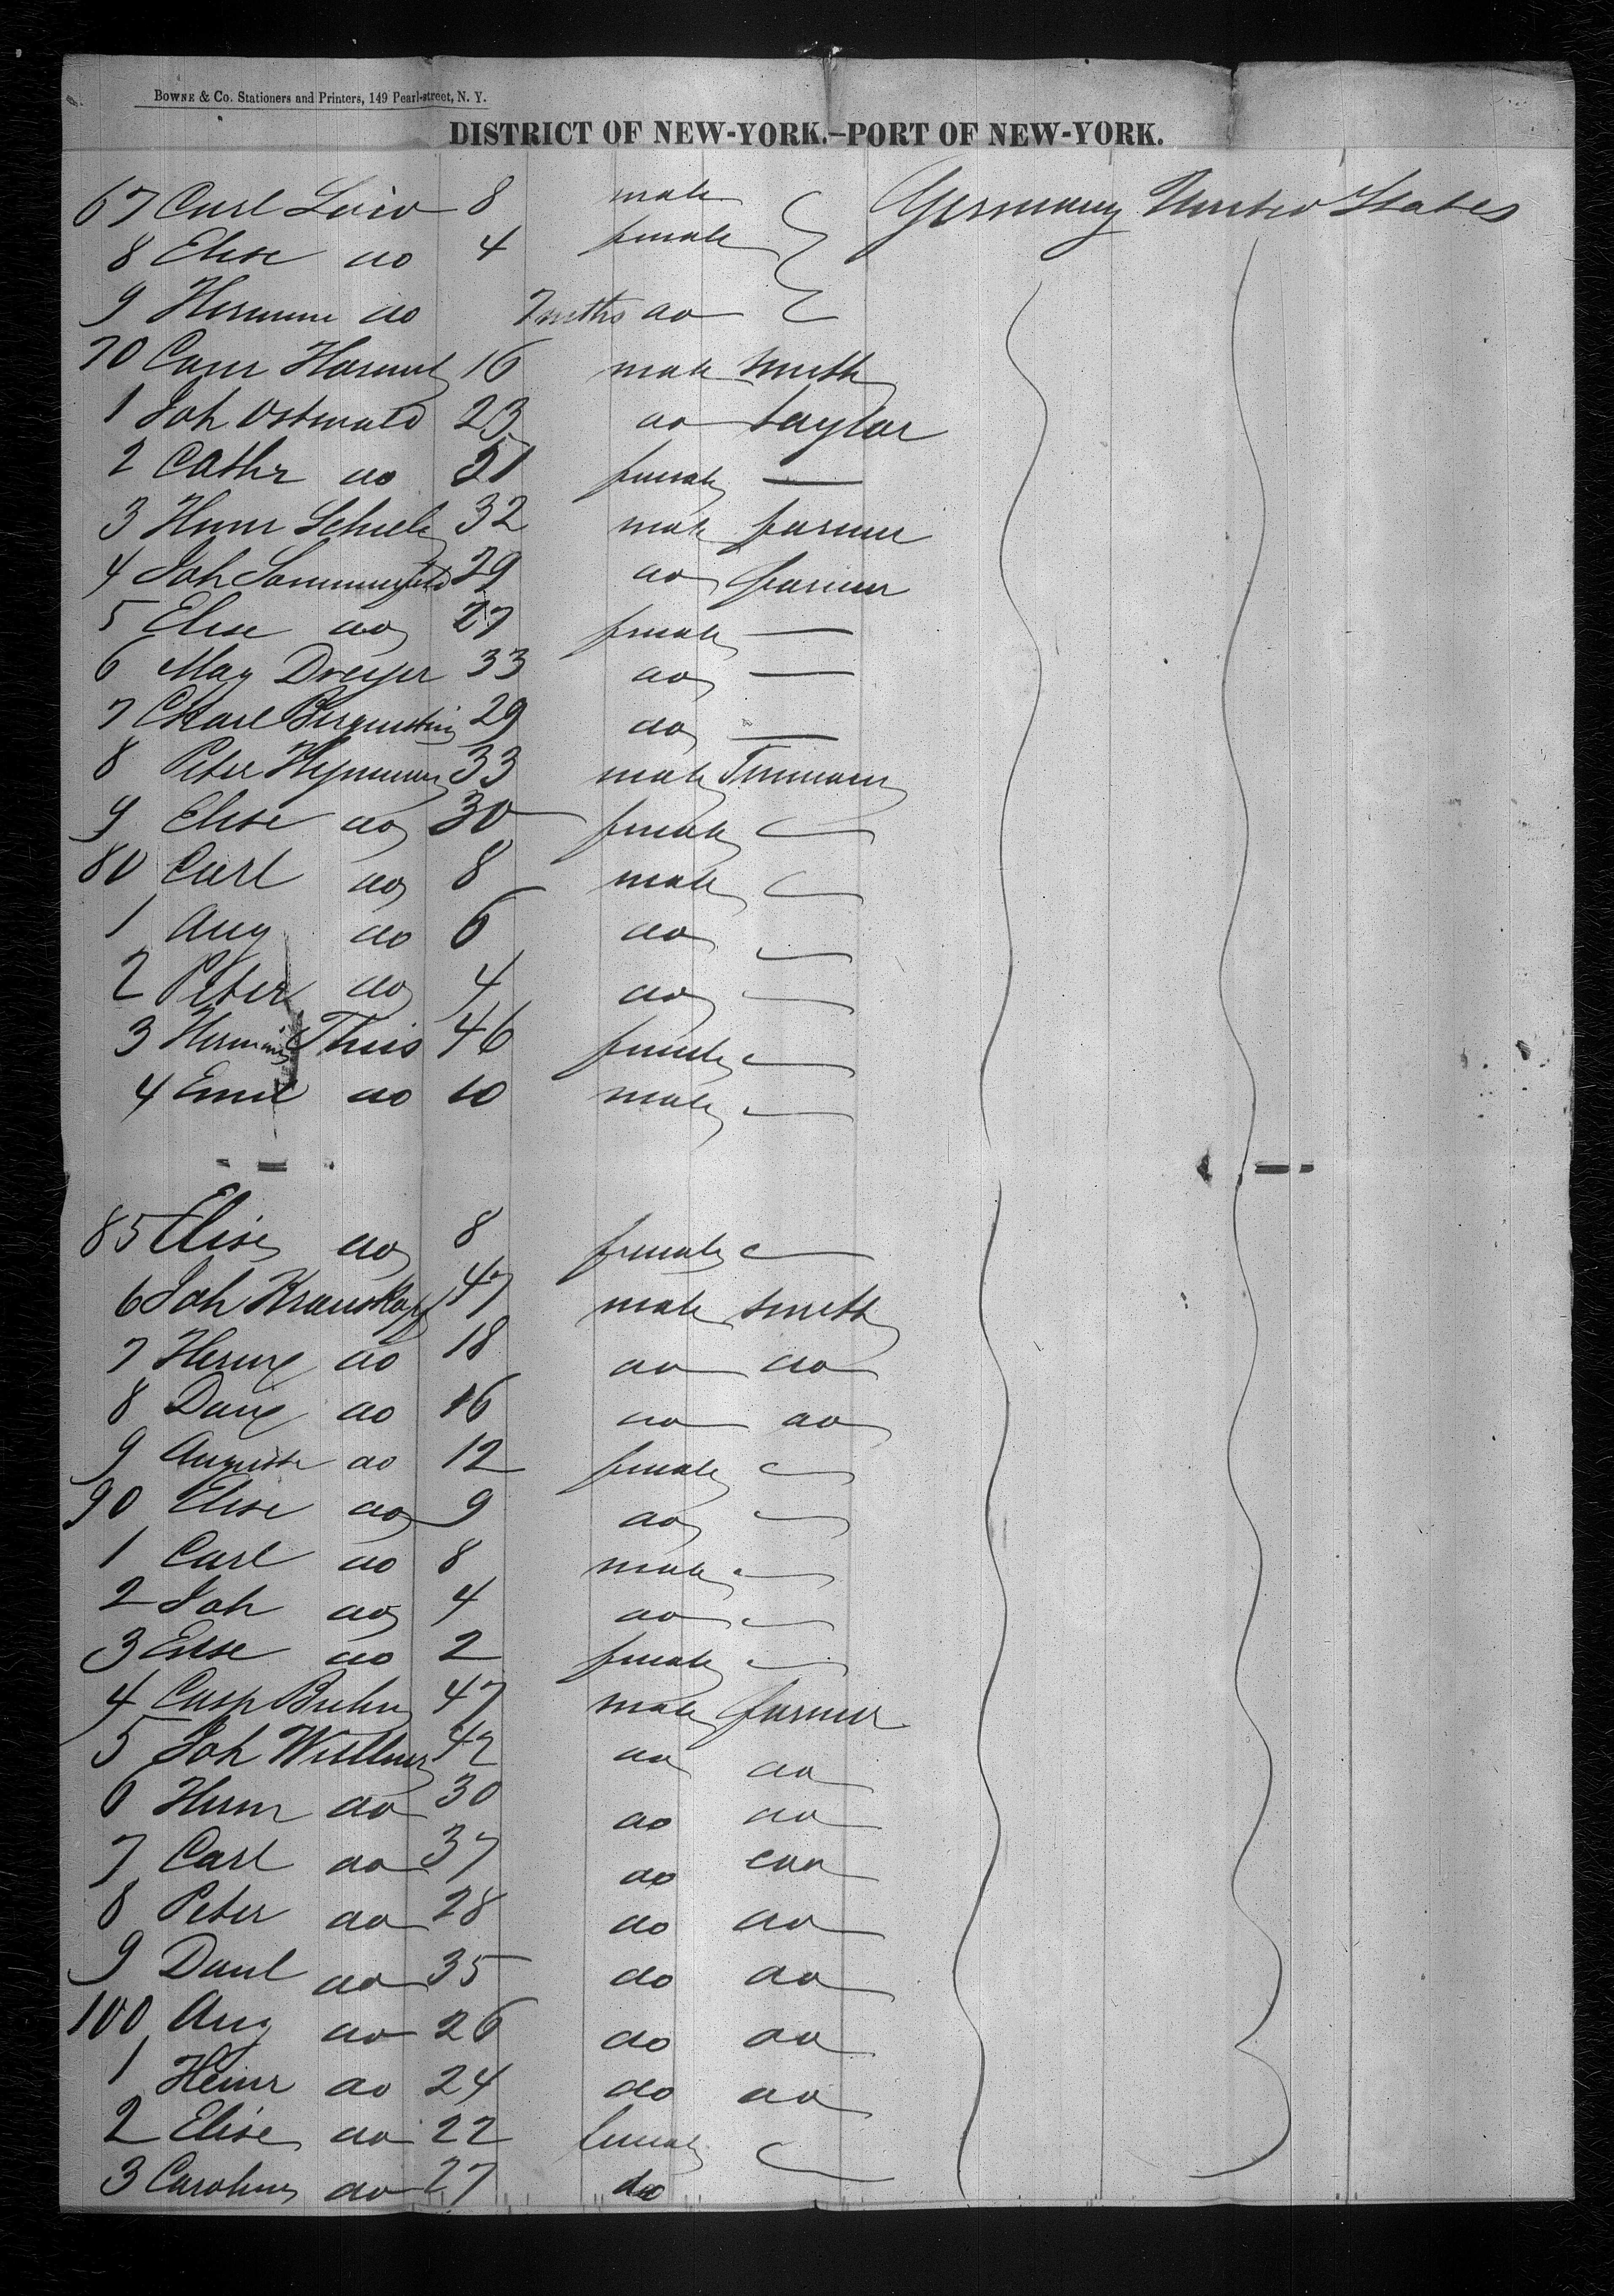 BOWNE & CO. Stationers and Printers, 149 Pearl-street, N. Y.
DISTRICT OF NEW-YORK.–PORT OF NEW-YORK.
67 Carl 8 male Germany United States
8 Elise do 4 female
9 do 7 mths do
70 16 male Smith
1 Joh Ostwald 23 do taylor
2 Cathr do 51 female —
3 Herm 32 male farmer
4 Joh Sommerfeld 29 do farmer
5 Elise do 27 female —
6 Mag Dreyer 33 do —
7 29 do —
8 Peter 33 male
9 Elise do 30 female —
80 Carl do 8 male —
1 Aug do 6 do —
2 Peter do 4 do —
3 Thies 46 female —
4 Emil do 10 male —
85 Elise do 8 female —
6 Joh Krauskopf 47 male Smith
7 do 18 do do
8 do 16 do do
9 Auguste do 12 female —
90 Elise do 9 do —
1 Carl do 8 male —
2 Joh do 4 do —
3 Else do 2 female —
4 Casp 47 male farmer
5 Joh 42 do do
6 Herm do 30 do do
7 Carl do 37 do do
8 Peter do 28 do do
9 Danl do 35 do do
100 Aug do 26 do do
1 Heinr do 24 do do
2 Elise do 22 female —
3 Caroline do 27 do